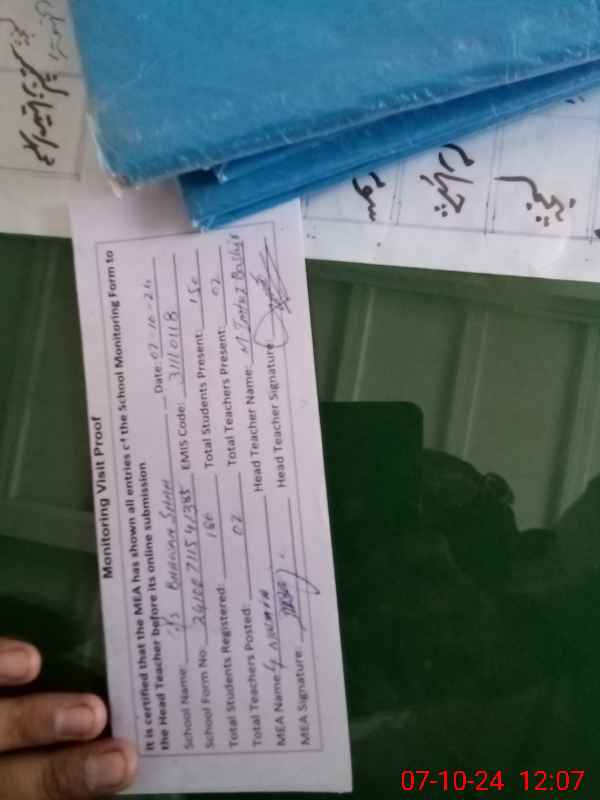 Monitoring Visit Proof
It is certified that the MEA has shown all entries of the School Monitoring Form to
the Head Teacher before its online submission
School Name: Date: 07-10-24
School Form No. EMIS Code: 31110118
Total Students Registered: 160 Total Students Present: 150
Total Teachers Posted: 02 Total Teachers Present: 02
MEA Name: Head Teacher Name: M Imtiaz Bashir
MEA Signature Head Teacher Signature
پنجم
چہارم
سوم
07-10-24 12:07